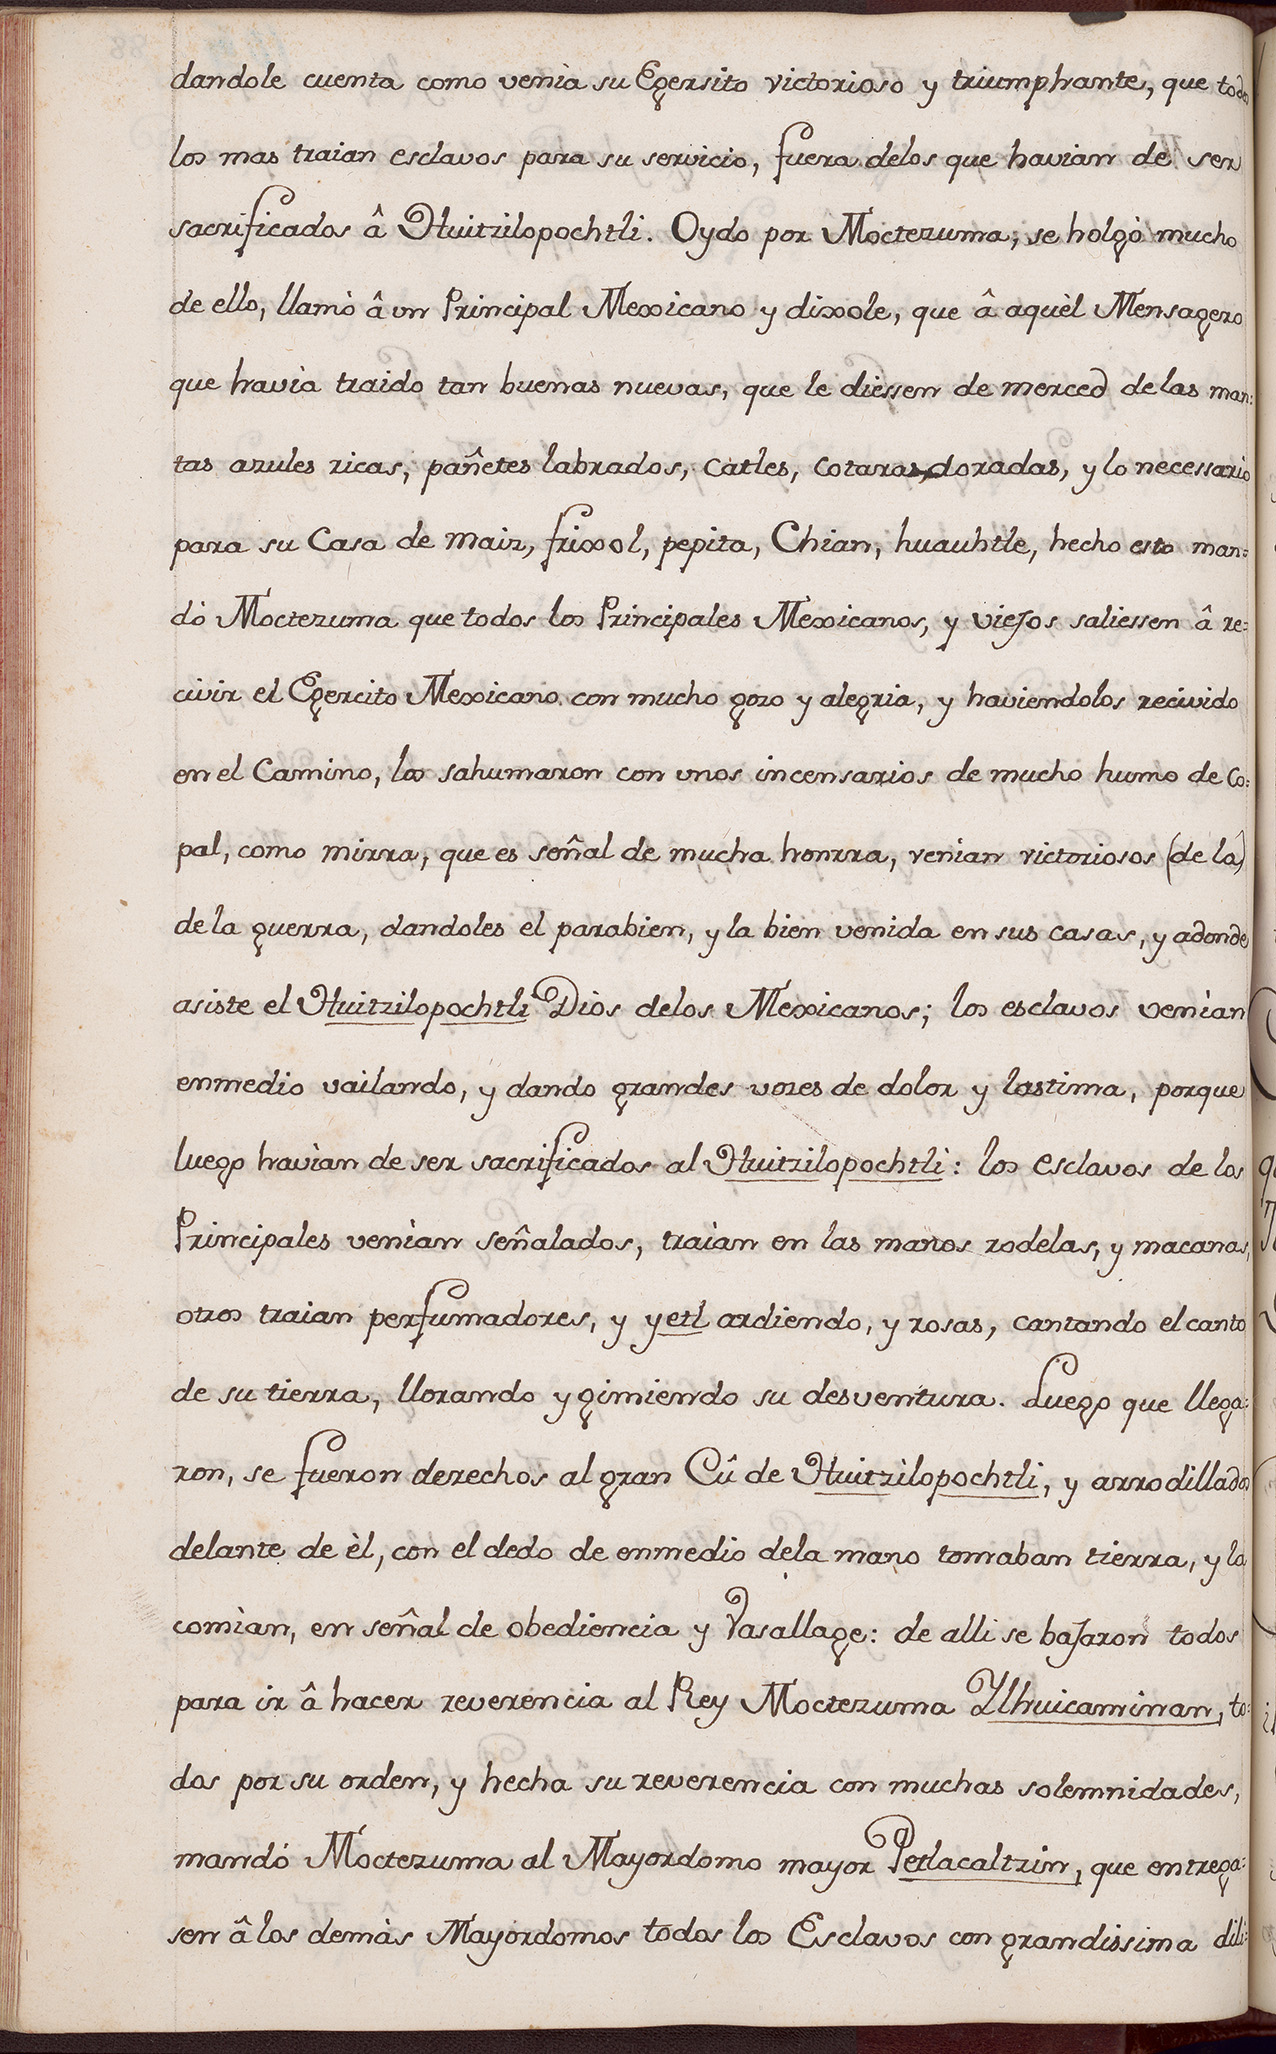 dandole cuenta como venìa su Egersito victorioso y triumphante, que todos
los mas traian esclavos para su servicio, fuera delos que havian de ser
sacrificados â Huitzilopochtli. Oydo por Moctezuma, se holgò mucho
de ello, llamò â vn Principal Mexicano y dixole, que â aquèl Mensagero
que havìa traido tan buenas nuevas, que le diessen de merced de las man:
tas azules ricas, pañetes labrados, catles, cotaras doradas, y lo necessario
para su Casa de maiz, frixol, pepita, Chian, huauhtle, hecho esto man:
dò Moctezuma que todos los Principales Mexicanos, y viejos saliessen â re:
civir el Egercito Mexicano con mucho gozo y alegria, y haviendolos recivido
en el Camino, los sahumaron con vnos incensarios de mucho humo de Co:
pal, como mirra, que es señal de mucha honrra, venian victoriosos (de la)
de la guerra, dandoles el parabien, y la bien venida en sus casas, y adonde
asiste el Huitzilopochtli Dios delos Mexicanos; los esclavos venìan
enmedio vailando, y dando grandes vozes de dolor y lastima, porque
luego havìan de ser sacrificados al Huitzilopochtli: los esclavos de los
Principales venìan señalados, traìan en las manos rodelas, y macanas,
otros traian perfumadores, y yetl ardiendo, y rosas, cantando el canto
de su tierra, llorando y gimiendo su desventura. Luego que llega:
ron, se fueron derechos al gran Cû de Huitzilopochtli, y arrodillados
delante de èl, con el dedo de enmedio dela mano tomaban tierra, y la
comìan, en señal de obediencia y Vasallage: de alli se bajaron todos
para ir â hacer reverencia al Rey Moctezuma Ylhuicaminan, to:
dos por su orden, y hecha su reverencia con muchas solemnidades,
mandò Moctezuma al Mayordomo mayor Petlacaltzin, que entrega:
sen â los demàs Mayordomos todos los Esclavos con grandissima dili: